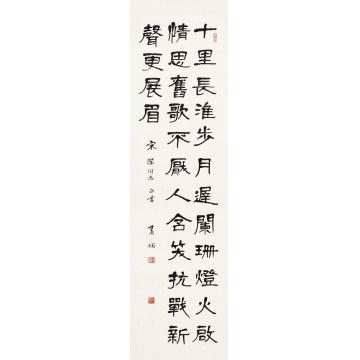 十里長淮步月遲闌珊燈火啟
情思舊歌不厭人含笑抗戰新
聲更展眉
宗瑾同志正書 蕭嫻